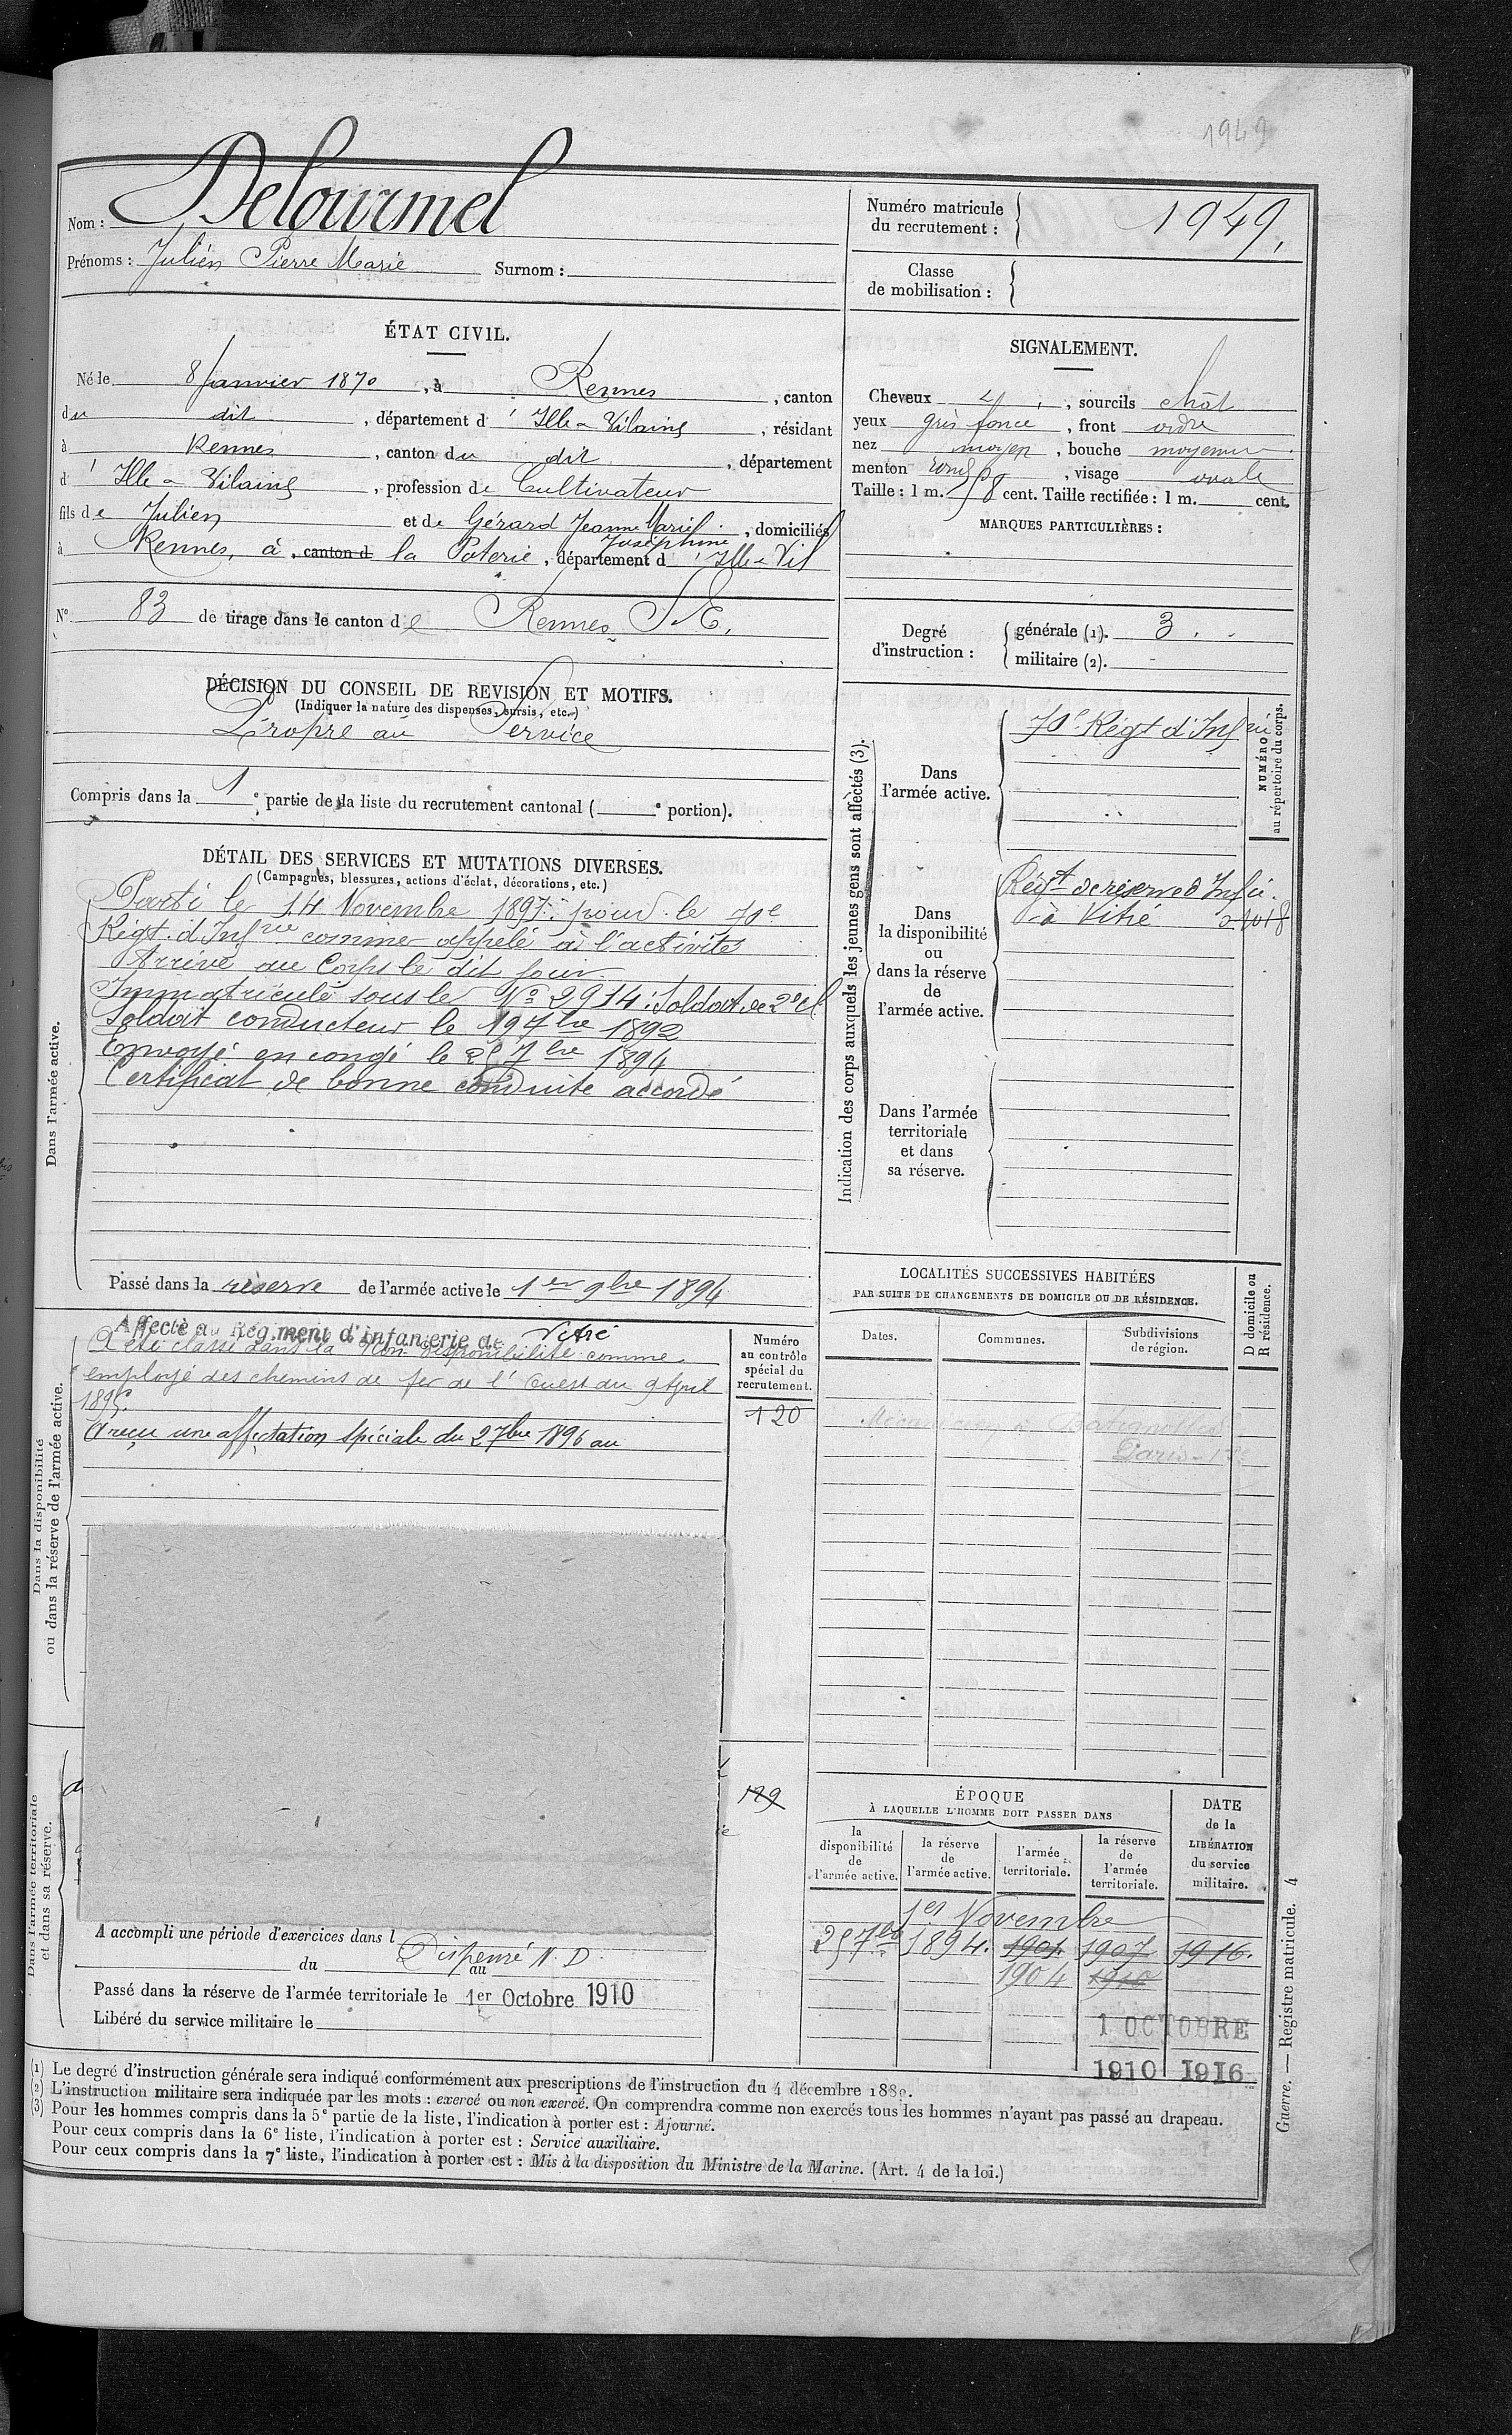 1949
Nom : Delourmel
Prénoms : Julien Pierre Marie Surnom :
Numéro matricule du recrutement : 1949,
Classe de mobilisation :
ÉTAT CIVIL.
Né le 8 Janvier 1870, à Rennes, canton
du dit, département d'Ille-&-Vilaine, résidant
à Rennes, canton du dit, département
d'Ille-&-Vilaine, profession de Cultivateur
fils de Julien et de Gérard Jeanne Marie Joséphine, domiciliés
à Rennes, à canton d la Poterie, département d'Ille-&-Vil
N° 83 de tirage dans le canton de Rennes S.E.
SIGNALEMENT.
Cheveux, sourcils chât
yeux gris foncé, front ordre
nez moyen, bouche moyenne
menton rond, visage ovale
Taille : 1 m. 58 cent. Taille rectifiée : 1 m. cent.
MARQUES PARTICULIÈRES :
Degré d'instruction : générale (1). 3.
militaire (2).
DÉCISION DU CONSEIL DE REVISION ET MOTIFS.
(Indiquer la nature des dispenses, sursis, etc.)
Propre au Service
Compris dans la 1e partie de la liste du recrutement cantonal ( e portion).
DÉTAIL DES SERVICES ET MUTATIONS DIVERSES.
(Campagnes, blessures, actions d'éclat, décorations, etc.)
Dans l'armée active.
Parti le 14 Novembre 1891 pour le 70e
Régt d'Infrie comme appelé à l'activité
Arrivé au Corps le dit jour
Immatriculé sous le No 2914 : Soldat de 2e cl
Soldat conducteur le 19 7bre 1892
Envoyé en congé le 25 7bre 1894
Certificat de bonne conduite accordé
Passé dans la réserve de l'armée active le 1er 9bre 1894
Indication des corps auxquels les jeunes gens sont affectés (3).
NUMÉRO au répertoire du corps.
Dans l'armée active.
70e Régt d'Infrie
Dans la disponibilité ou dans la réserve de l'armée active.
Régt de réserve d'Infie
à Vitré 2018
Dans l'armée territoriale et dans sa réserve.
Dans la disponibilité ou dans la réserve de l'armée active.
Affecté au Régiment d'Infanterie de Vitré
A été classé dans la Non disponibilité comme
employé des chemins de fer de l'Ouest du 9 Avril
1895.
A reçu une affectation spéciale du 2 7bre 1896 au
Numéro au contrôle spécial du recrutement.
120
129
LOCALITÉS SUCCESSIVES HABITÉES
PAR SUITE DE CHANGEMENTS DE DOMICILE OU DE RÉSIDENCE.
Dates. Communes. Subdivisions de région.
D domicile ou R résidence.
Mécanicien à Batignolles
Paris
Dans l'armée territoriale et dans sa réserve.
A accompli une période d'exercices dans l
Dispensé N. D.
du au
Passé dans la réserve de l'armée territoriale le 1er Octobre 1910
Libéré du service militaire le
ÉPOQUE
À LAQUELLE L'HOMME DOIT PASSER DANS
la disponibilité de l'armée active.
la réserve de l'armée active.
l'armée territoriale.
la réserve de l'armée territoriale.
DATE de la LIBÉRATION du service militaire.
1er Novembre
25 7bre 1894. 1901. 1907 1916.
1904 1910
1 OCTOBRE
1910 1916
(1) Le degré d'instruction générale sera indiqué conformément aux prescriptions de l'instruction du 4 décembre 1889.
(2) L'instruction militaire sera indiquée par les mots : exercé ou non exercé. On comprendra comme non exercés tous les hommes n'ayant pas passé au drapeau.
(3) Pour les hommes compris dans la 5e partie de la liste, l'indication à porter est : Ajourné.
Pour ceux compris dans la 6e liste, l'indication à porter est : Service auxiliaire.
Pour ceux compris dans la 7e liste, l'indication à porter est : Mis à la disposition du Ministre de la Marine. (Art. 4 de la loi.)
Guerre. — Registre matricule. 4